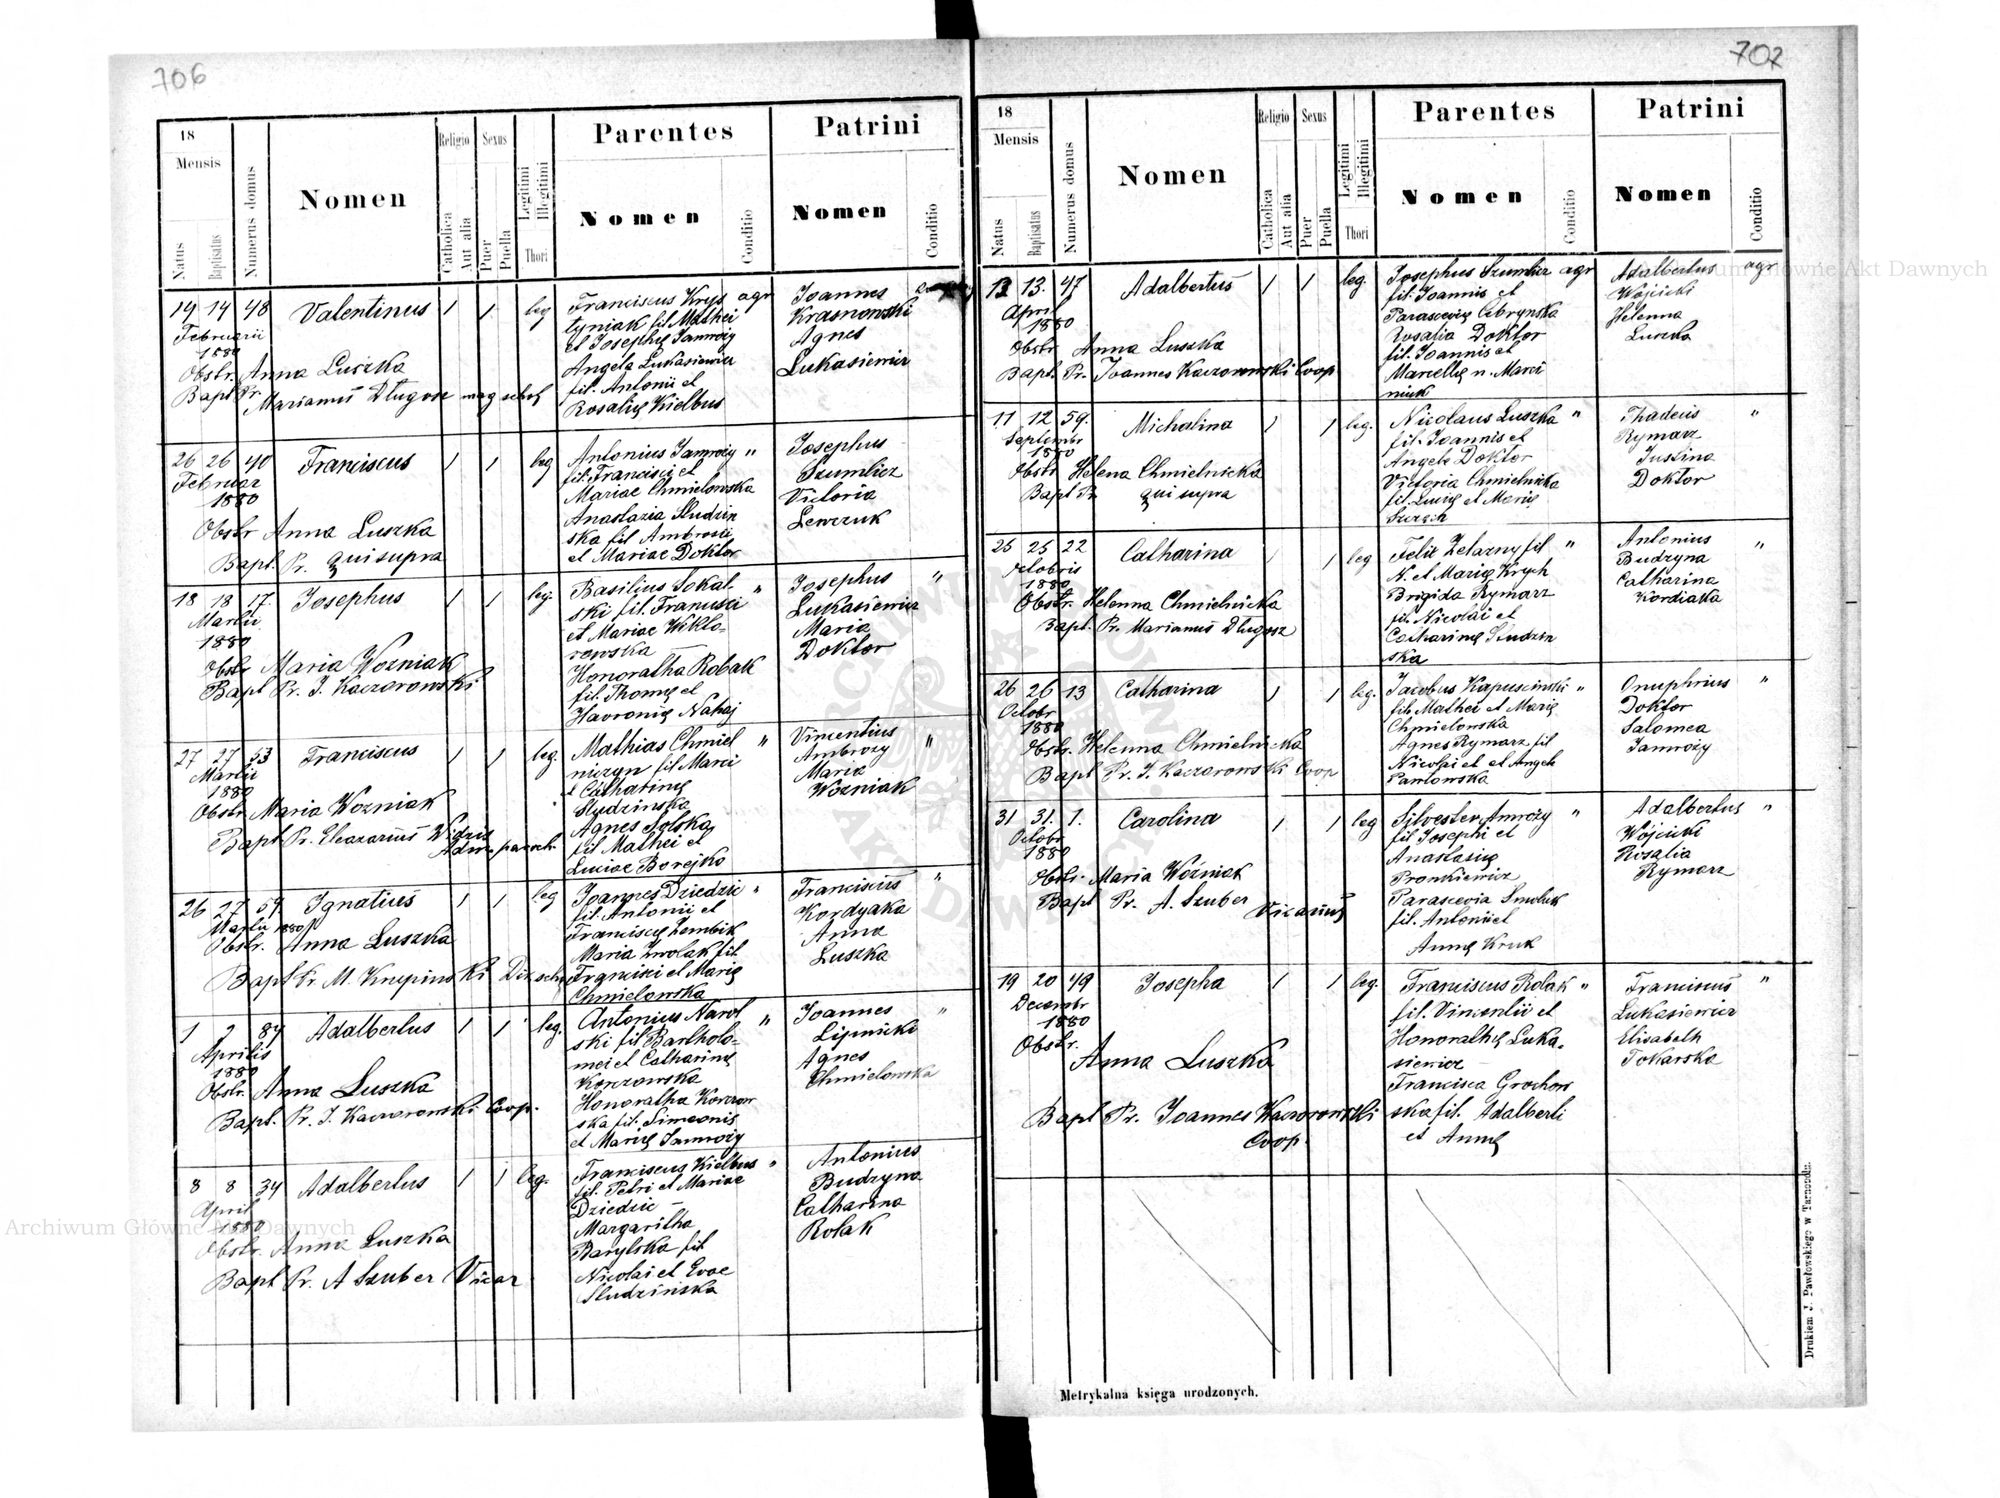 706
18
Mensis
Natus
Baptisatus
Numerus domus
Nomen
Religio
Catholica
Aut alia
Sexus
Puer
Puella
Legitimi
Illegitimi
Thori
Parentes
Nomen
Conditio
Patrini
Nomen
Conditio
19 14 48 Valentinus 1 1 leg
Februarii
1880
Obstr. Anna Luszka
Bapt Pr. Marianus Długosz mag schol
Franciscus Krys agr
tyniak fil Mathei
et Josephę Jamroży
Angela Łukasiewicz
fil. Antonii et
Rosalię Kielbus
Joannes
Krasnowski
Agnes
Łukasiewicz
26 26 40 Franciscus 1 1 leg
Februar
1880
Obstr Anna Luszka
Bapt. Pr. qui supra
Antonius Jamroży "
fil. Francisci et
Mariae Chmielowska
Anastazia Sludzin
ska fil Ambrosii
et Mariae Doktor
Josephus
Szumlicz
Victoria
Lewczuk
18 18 17. Josephus 1 1 leg.
Martii
1880
Obstr Maria Wozniak
Bapt Pr. J. Kaczorowski
Basilius Sokal- "
ski fil. Francisci
et Mariae Wikto-
rowska
Honoratha Robak
fil. Thomę et
Havronię Nahaj
Josephus "
Łukasiewicz
Maria
Doktor
27 27 53 Franciscus 1 1 leg.
Martii
1880
Obstr Maria Wozniak
Bapt Pr. Eleazarius
Mathias Chmiel "
niczyn fil Marci
et Catharinę
Sludzinska
Agnes Solska
fil Mathei et
Luciae Borejko
Vincentius
Ambrozy "
Maria
Wozniak
26 27 59 Ignatius 1 1 leg
Martii 1880
Obstr. Anna Luszka
Bapt Pr M. Krupinski
Joannes Dziedzic "
fil. Antonii et
Franciscę Lembik
Maria Zwolak fil.
Francisci et Marię
Chmielowska
Franciscus "
Kordyaka
Anna
Luszka
1 2 84 Adalbertus 1 1 leg.
Aprilis
1880
Obstr. Anna Luszka
Bapt. Pr. J. Kaczorowski Coop.
Antonius Narol "
ski fil Bartholo-
mei et Catharinę
Korczowska
Honoratha Korczow
ska fil. Simeonis
et Marię Jamroży
Joannes "
Lipnicki
Agnes
Chmielowska
8 8 34 Adalbertus 1 1 leg.
April
1880
Obstr. Anna Luszka
Bapt Pr. A Szuber Vicar
Franciscus Kielbus "
fil. Petri et Mariae
Dziedzic
Margaritha
Barylska fil
Nicolai et Evae
Sludzinska
Antonius
Budzyna
Catharina
Rolak
702
18
Mensis
Natus
Baptisatus
Numerus domus
Nomen
Religio
Catholica
Aut alia
Sexus
Puer
Puella
Legitimi
Illegitimi
Thori
Parentes
Nomen
Conditio
Patrini
Nomen
Conditio
13. 47 Adalbertus 1 1 leg.
April
1880
Obstr Anna Luszka
Bapt. Pr. Joannes Kaczorowski Coop
Josephus Szumlicz agr
fil. Joannis et
Parascevię Cebrynska
Rosalia Doktor
fil. Joannis et
Marcellę n. Marci
niuk
Adalbertus agr
Wojcicki
Helenna
Luszka
11 12 59. Michalina 1 1 leg.
Septembr
1880
Obstr Helena Chmielnicka
Bapt Pr qui supra
Nicolaus Luszka "
fil. Joannis et
Angelę Doktor
Victoria Chmielnicka
fil. Lucię et Marię
Thadeus "
Rymarz
Justina
Doktor
25 25 22 Catharina 1 1 leg
Octobris
1880
Obstr. Helenna Chmielnicka
Bapt. Pr. Marianus Długosz
Felix Zelazny fil "
N. et Marię Krych
Brigida Rymarz
fil. Nicolai et
Catharinę Sludzin
ska
Antonius "
Budzyna
Catharina
Kordiaka
26 26 13 Catharina 1 1 leg.
Octobr
1880
Obstr. Helenna Chmielnicka
Bapt Pr. J. Kaczorowski Coop
Jacobus Kapuscinski "
fil. Mathei et Marię
Chmielowska
Agnes Rymarz fil
Nicolai et et Angelę
Pawłowska
Onuphrius "
Doktor
Salomea
Jamroży
31 31. 1. Carolina 1 1 leg
Octobr
1880
Obstr. Maria Woźniak
Bapt Pr. A. Szuber Vicarius
Silvester Amroży "
fil Josephi et
Anastasię
Pronkiewicz
Parascevia Smoluk
fil. Antonii et
Annę Kruk
Adalbertus "
Wojcicki
Rosalia
Rymarz
19 20 49 Josepha 1 1 leg.
Decembr
1880
Obstr. Anna Luszka
Bapt Pr. Joannes Kaczorowski
Coop.
Franciscus Rolak "
fil. Vincentii et
Honorathę Łuka-
siewicz
Francisca Grochow
ska fil. Adalberti
et Annę
Franciscus "
Łukasiewicz
Elisabeth
Tokarska
Metrykalna księga urodzonych.
Drukiem J. Pawłowskiego w Tarnopolu.
Archiwum Główne Akt Dawnych
Archiwum Główne Akt Dawnych